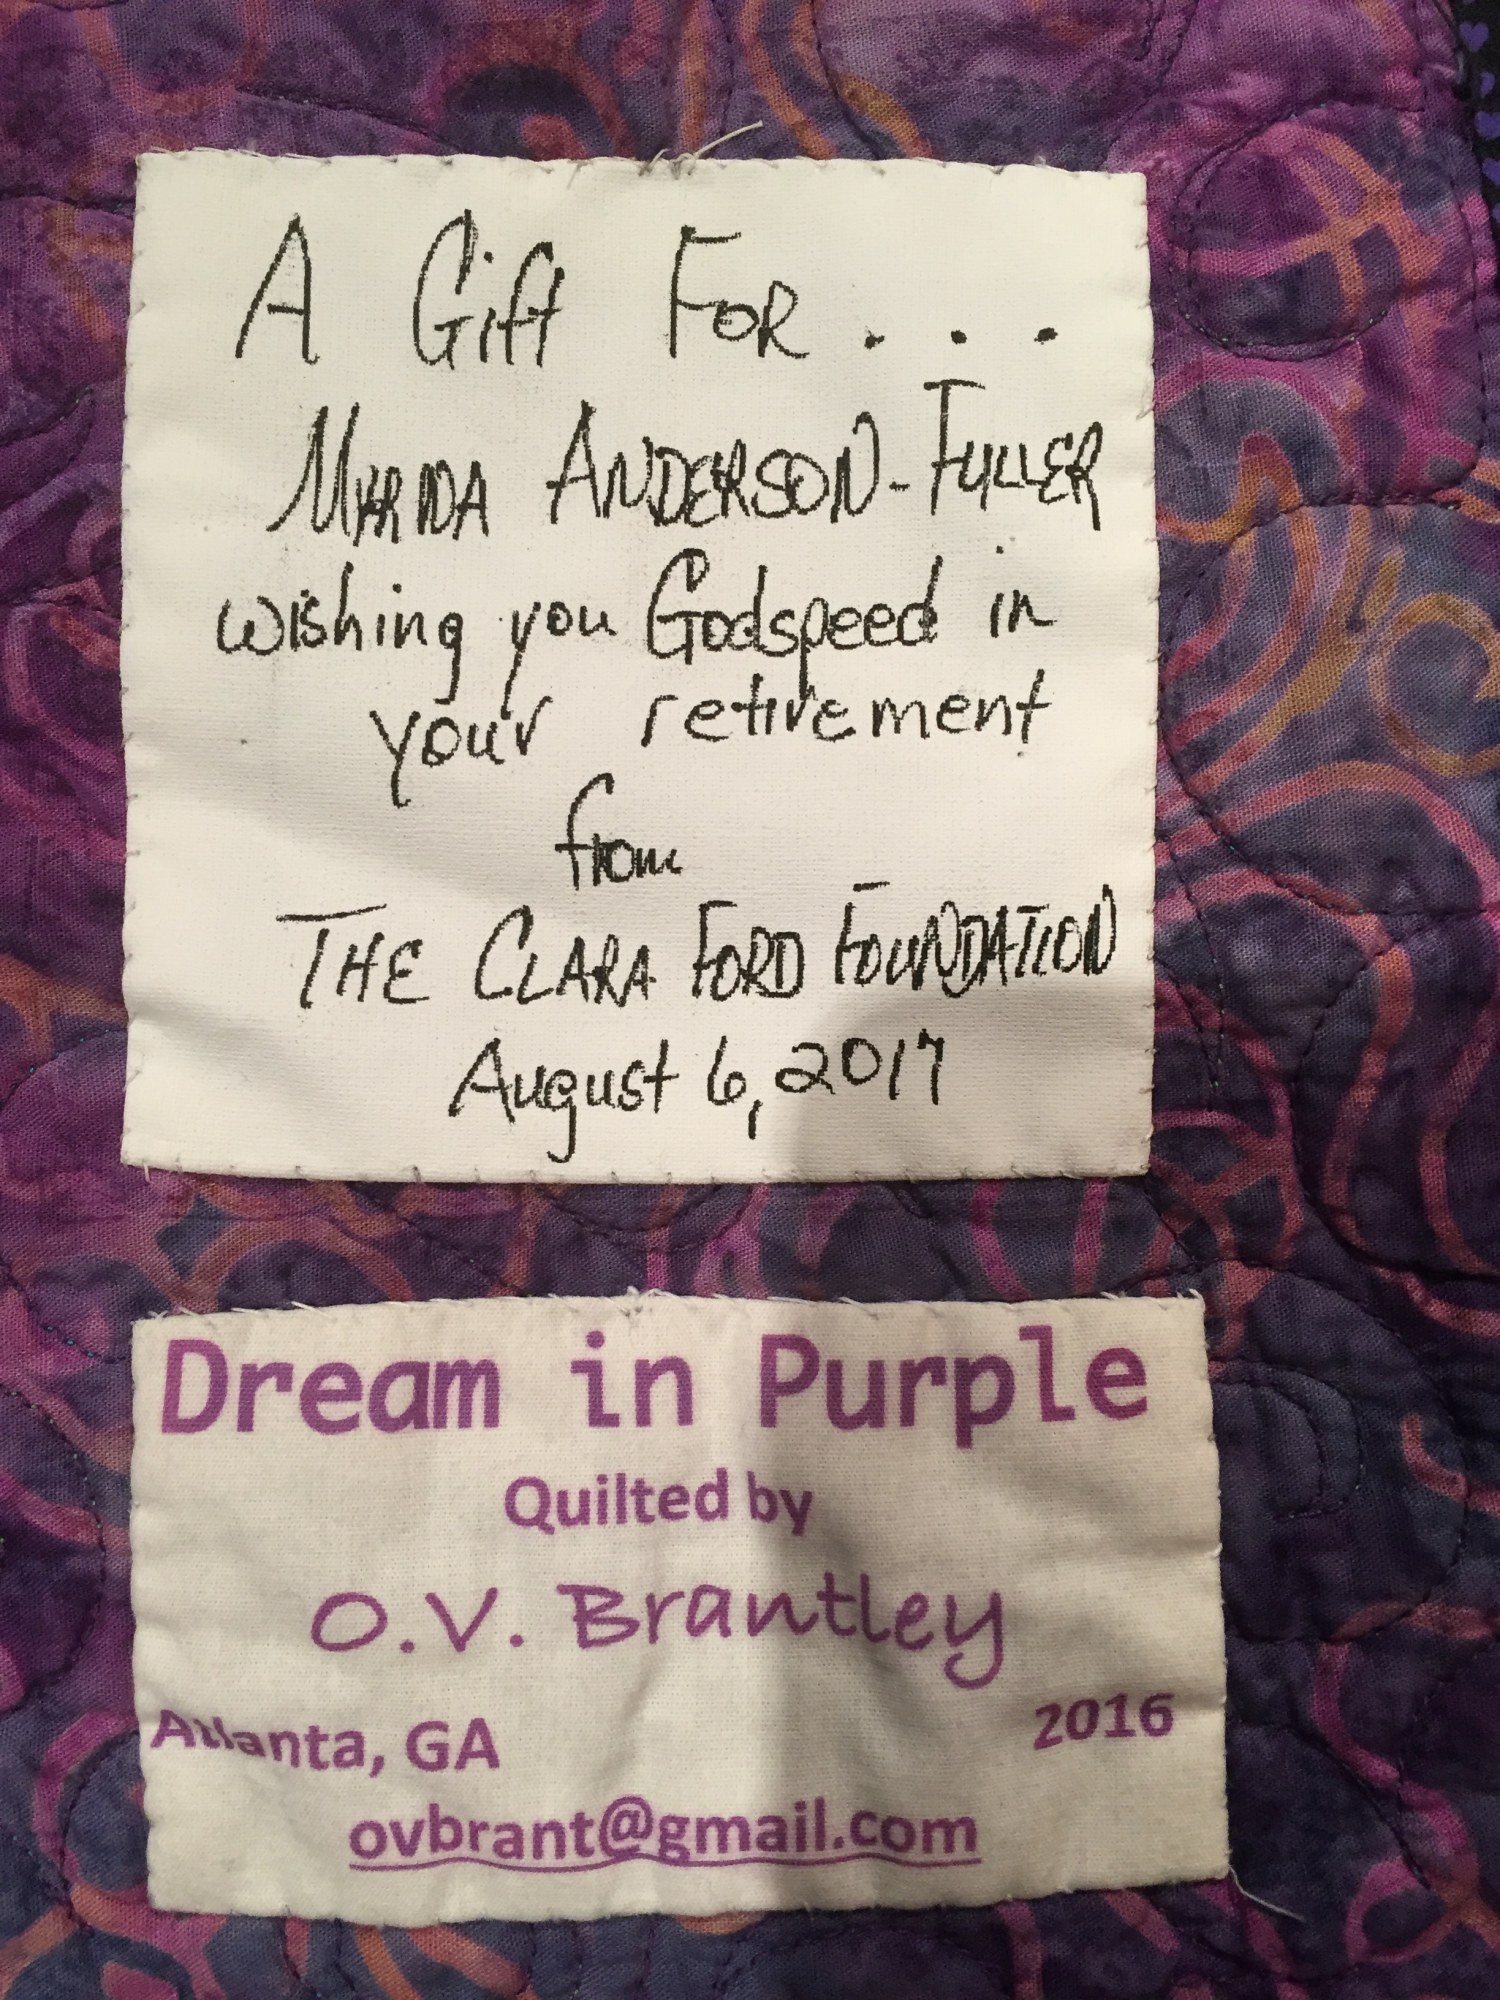 A Gift FOR . . .
ANDERSON-FULLER
wishing you Godspeed in
your retirement
from
THE CLARA FORD FOUNDATION
August 6, 2017
Dream in Purple
Quilted by
O.V. Brantley
Atlanta, GA 2016
ovbrant@gmail.com